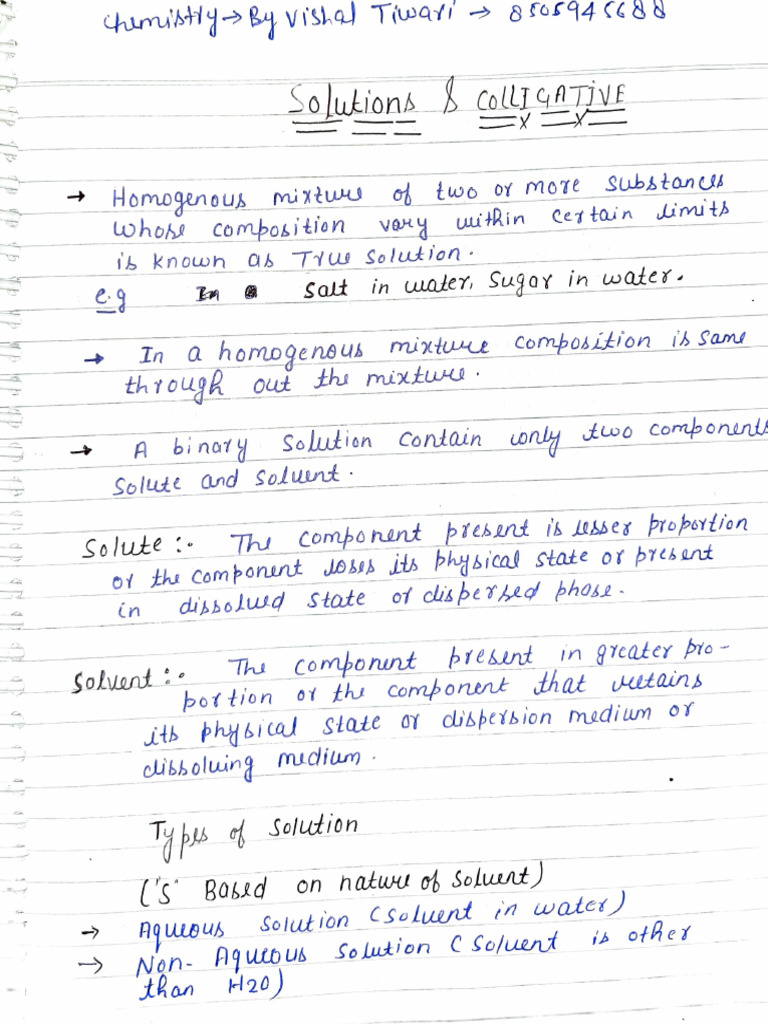 Chemistry → By Vishal Tiwari → 8505945688
Solutions & COLLIGATIVE
→ Homogenous mixture of two or more substances
whose composition vary within certain limits
is known as True solution.
e.g In salt in water, sugar in water.
→ In a homogenous mixture composition is same
through out the mixture.
→ A binary solution contain only two components
solute and solvent.
Solute :- The component present is lesser proportion
or the component loses its physical state or present
in dissolved state or dispersed phase.
Solvent :- The component present in greater pro-
portion or the component that retains
its physical state or dispersion medium or
dissolving medium.
Types of solution
('S' Based on nature of solvent)
→ Aqueous solution (solvent in water)
→ Non-Aqueous solution (solvent is other
than H2O)